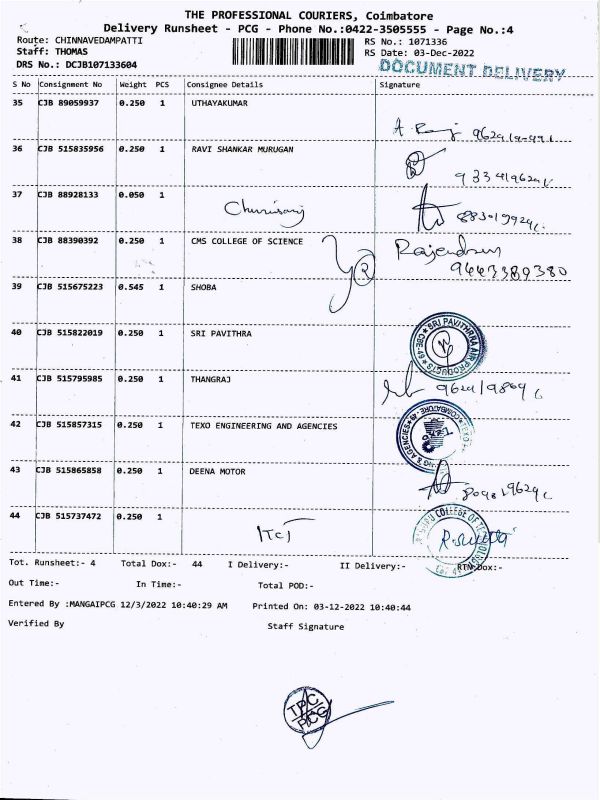 THE PROFESSIONAL COURIERS, Coimbatore
Delivery Runsheet - PCG - Phone No.:0422-3505555 - Page No.:4
Route: CHINNAVEDAMPATTI RS No.: 1071336
Staff: THOMAS RS Date: 03-Dec-2022
DRS No.: DCJB107133604 DOCUMENT DELIVERY
S No Consignment No Weight PCS Consignee Details Signature
35 CJB 89059937 0.250 1 UTHAYAKUMAR
36 CJB 515835956 0.250 1 RAVI SHANKAR MURUGAN
37 CJB 88928133 0.050 1
38 CJB 88390392 0.250 1 CMS COLLEGE OF SCIENCE Rajendran
9443389380
39 CJB 515675223 0.545 1 SHOBA
40 CJB 515822019 0.250 1 SRI PAVITHRA SRI PAVITHRA AIR PRODUCTS
41 CJB 515795985 0.250 1 THANGRAJ
42 CJB 515857315 0.250 1 TEXO ENGINEERING AND AGENCIES
43 CJB 515865858 0.250 1 DEENA MOTOR
44 CJB 515737472 0.250 1 COLLEGE OF
Tot. Runsheet:- 4 Total Dox:- 44 I Delivery:- II Delivery:- RTN Dox:-
Out Time:- In Time:- Total POD:-
Entered By :MANGAIPCG 12/3/2022 10:40:29 AM Printed On: 03-12-2022 10:40:44
Verified By Staff Signature
TPC/
PCG